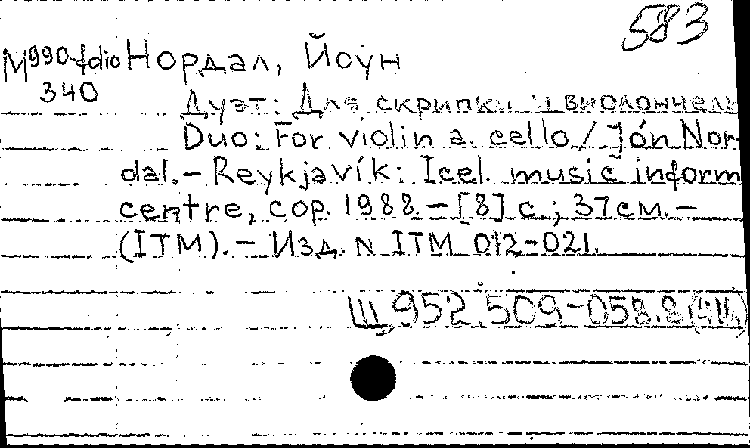 583
М990-fdio Нордал, Йоун
340
Дуэт: Для скрипки и виолончели
Duo: For violin a. cello / Jón Nor-
dal. – Reykjavík: Icel. music inform
centre, cop. 1988. – [8] с.; 37 см. –
(ITM). – Изд. N ITM 012-021.
Щ952.509-058.8(4И)